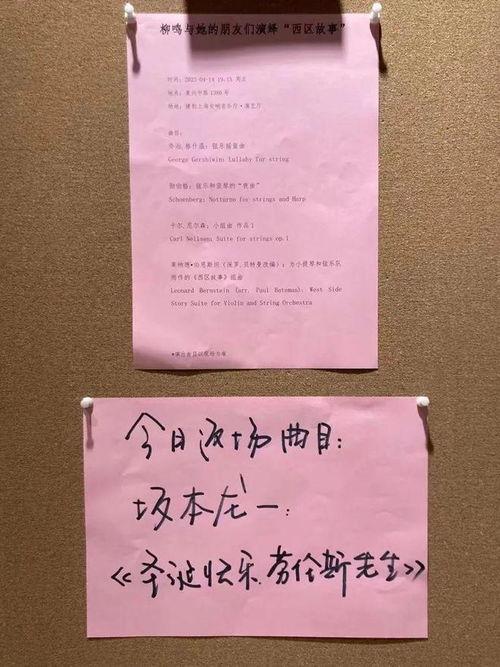 柳鸣与她的朋友们演绎“西区故事”
时间：2023-04-14 19:15 周五
地点：复兴中路1380号
场地：捷豹上海交响音乐厅·演艺厅
曲目：
乔治.格什温：弦乐摇篮曲
George Gershiwin: Lullaby for string
勋伯格：弦乐和竖琴的“夜曲”
Schoenberg: Notturno for strings and Harp
卡尔.尼尔森：小组曲 作品1
Carl Nelisen: Suite for strings op.1
莱纳德•伯恩斯坦（保罗.贝特曼改编）：为小提琴和弦乐队
所作的《西区故事》组曲
Leonard Bernstein (arr. Paul Bateman): West Side
Story Suite for Violin and String Orchestra
*演出曲目以现场为准
今日返场曲目：
坂本龙一：
《圣诞快乐,劳伦斯先生》